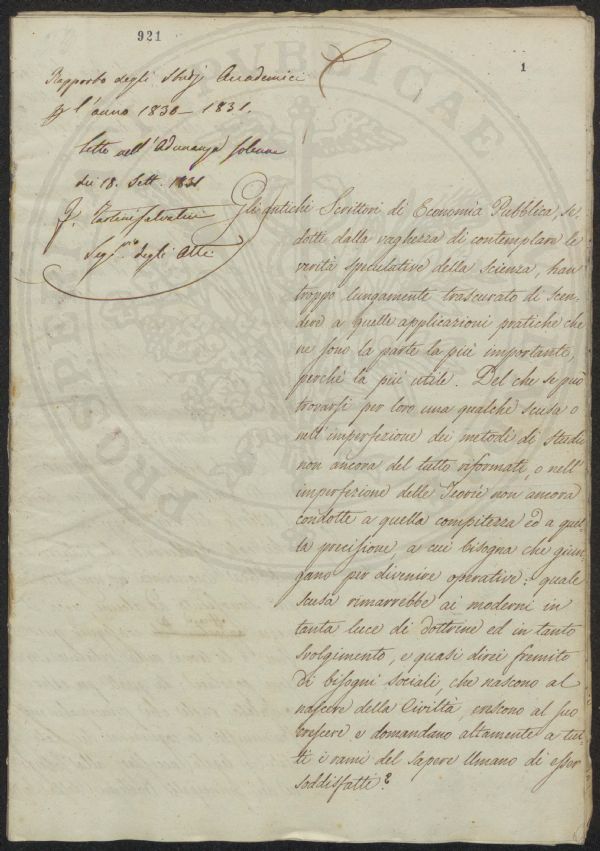 921
1
Rapporto degli Studj Accademici
p l'anno 1830-1831.
letto nell'Adunanza solenne
dei 18. Sett. 1831
F. Tartini Salvatici
Seg.rio degli Atti
Gli antichi Scrittori di Economia Pubblica, se,
dotti dalla vaghezza di contemplare le
verità speculative della scienza, han
troppo lungamente trascurato di scen,
dere a quelle applicazioni pratiche che
ne sono la parte la più importante,
perchè la più utile. Del che se può
trovarsi per loro una qualche scusa o
nell'imperfezione dei metodi di studio
non ancora del tutto riformati, o nell'
imperfezione delle Teorie non ancora
condotte a quella compitezza ed a quel,
la precisione, a cui bisogna che giun,
gano per divenire operative: quale
scusa rimarrebbe ai moderni in
tanta luce di dottrine ed in tanto
svolgimento, e quasi direi fremito
di bisogni sociali, che nascono al
nascere della Civiltà, crescono al suo
crescere e domandano altamente a tut,
ti i rami del sapere Umano di esser
soddisfatti?
PUBLICAE
PROSPERITATI